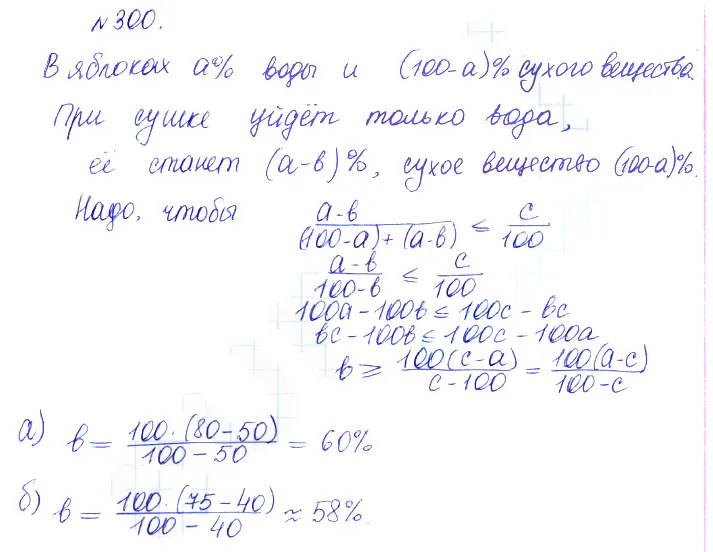 №300.
В яблоках а% воды и (100-а)% сухого вещества.
При сушке уйдёт только вода,
её станет (а-в)%, сухое вещество (100-а)%.
Надо, чтобы (а-в)/((100-а)+(а-в)) ≤ с/100
(а-в)/(100-в) ≤ с/100
100а-100в ≤ 100с - вс
вс-100в ≤ 100с - 100а
в ≥ 100(с-а)/(с-100) = 100(а-с)/(100-с)
а) в = 100·(80-50)/(100-50) = 60%
б) в = 100·(75-40)/(100-40) ≈ 58%.